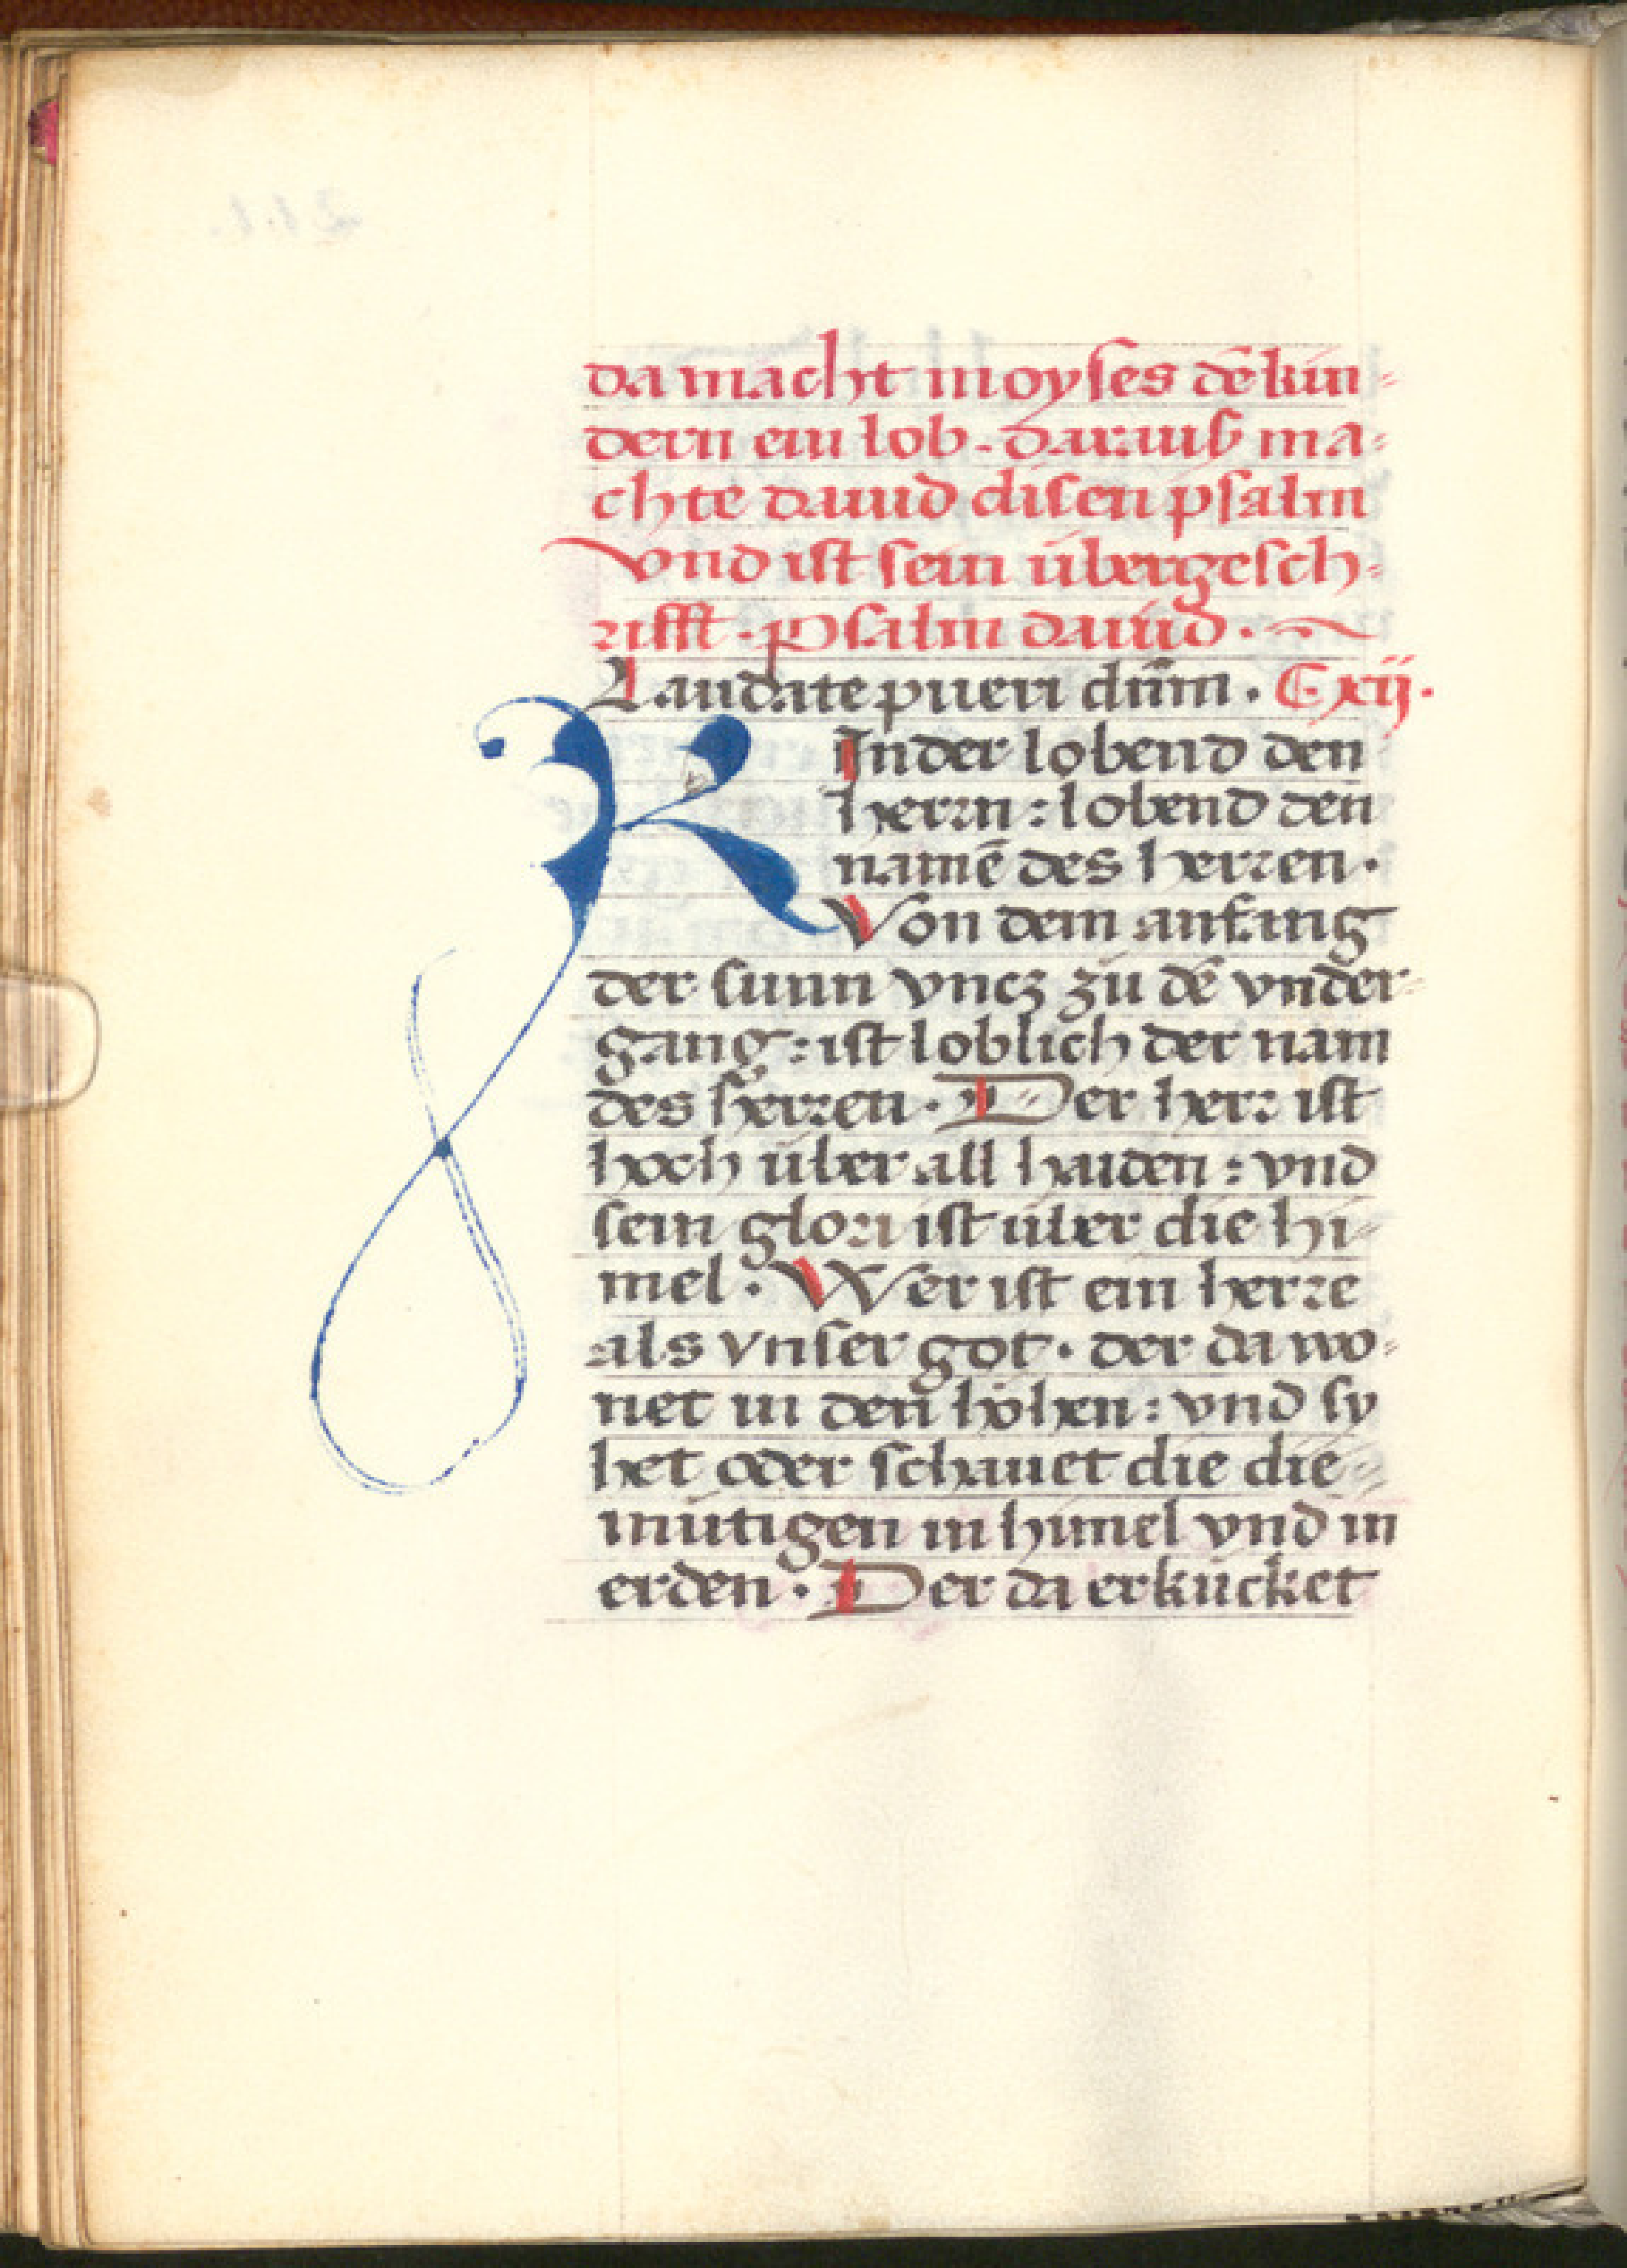 da macht moyſes dē kin⸗
dern ein lob. Darauß ma⸗
chte dauid diſen pſalm
vnd iſt ſein übergeſch⸗
rifft. Pſalm dauid.
Laudate pueri dn̄m. Cxij.
KInder lobend den
herrn: lobend den
namē des herren.
Von dem anfang
der ſunn vncz zů dē vnder⸗
gang: iſt loblich der nam
des herren. Der herr iſt
hoch über all haiden: vnd
ſein glori iſt über die hi⸗
mel. Wer iſt ein herre
als vnſer got. der da wo⸗
net in den höhen: vnd ſy
het oder ſchauet die die⸗
mütigen in himel vnd in
erden. Der da erkücket